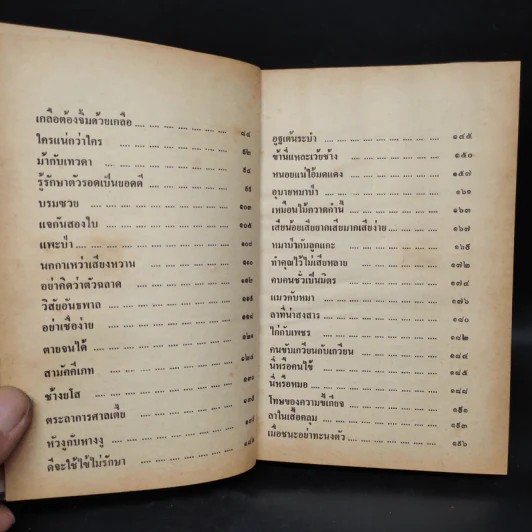 เกลือต้องจิ้มด้วยเกลือ .... .... .... .... .... .... ๘๘
ใครแน่กว่าใคร .... .... .... .... .... .... ๙๒
ม้ากับเทวดา .... .... .... .... .... .... ๙๔
รู้รักษาตัวรอดเป็นยอดดี .... .... .... .... ๙๙
บรมซวย .... .... .... .... .... .... ๑๐๓
แจกันสองใบ .... .... .... .... .... .... ๑๐๕
แพะบ้า .... .... .... .... .... .... ๑๐๘
นกกาเหว่าเสียงหวาน .... .... .... .... ๑๑๐
อย่าคิดว่าตัวฉลาด .... .... .... .... ๑๑๒
วิสัยอันธพาล .... .... .... .... .... ๑๑๕
อย่าเชื่อง่าย .... .... .... .... .... ๑๒๑
ตายจนได้ .... .... .... .... .... ๑๒๔
สามัคคีเภท .... .... .... .... ....
ช้างยโส .... .... .... .... ....
ตระลาการศาลเตี้ย .... .... .... ....
หัวงูกับหางงู .... .... .... ....
ดีจะใช้ไข้ไม่รักษา .... .... .... ....
อูฐเต้นระบำ .... .... .... .... .... ๑๔๕
ช้านี่แหละเว้ยช้าง .... .... .... .... ๑๕๐
หนอยแน่ไอ้มดแดง .... .... .... .... ๑๕๗
อุบายหมาป่า .... .... .... .... .... ๑๖๑
เหมือนไม้กวาดกำนี้ .... .... .... .... ๑๖๓
เสียน้อยเสียยากเสียมากเสียง่าย .... .... .... ๑๖๗
หมาป่ากับลูกแกะ .... .... .... .... ๑๖๙
ทำคุณไว้ไม่เสียหลาย .... .... .... .... ๑๗๒
คบคนชั่วเป็นมิตร .... .... .... .... ๑๗๔
แมวกับหมา .... .... .... .... .... ๑๗๖
ลาที่น่าสงสาร .... .... .... .... ๑๘๐
ไก่กับเพชร .... .... .... .... .... ๑๘๒
คนขับเกวียนกับเกวียน .... .... .... .... ๑๘๔
นี่หรือคนไข้ .... .... .... .... ๑๘๕
นี่หรือหมอ .... .... .... .... .... ๑๘๘
โทษของความขี้เกียจ .... .... .... .... ๑๙๑
ลาในเสื้อคลุม .... .... .... .... ๑๙๓
เมื่อชนะอย่าทะนงตัว .... .... .... .... ๑๙๖